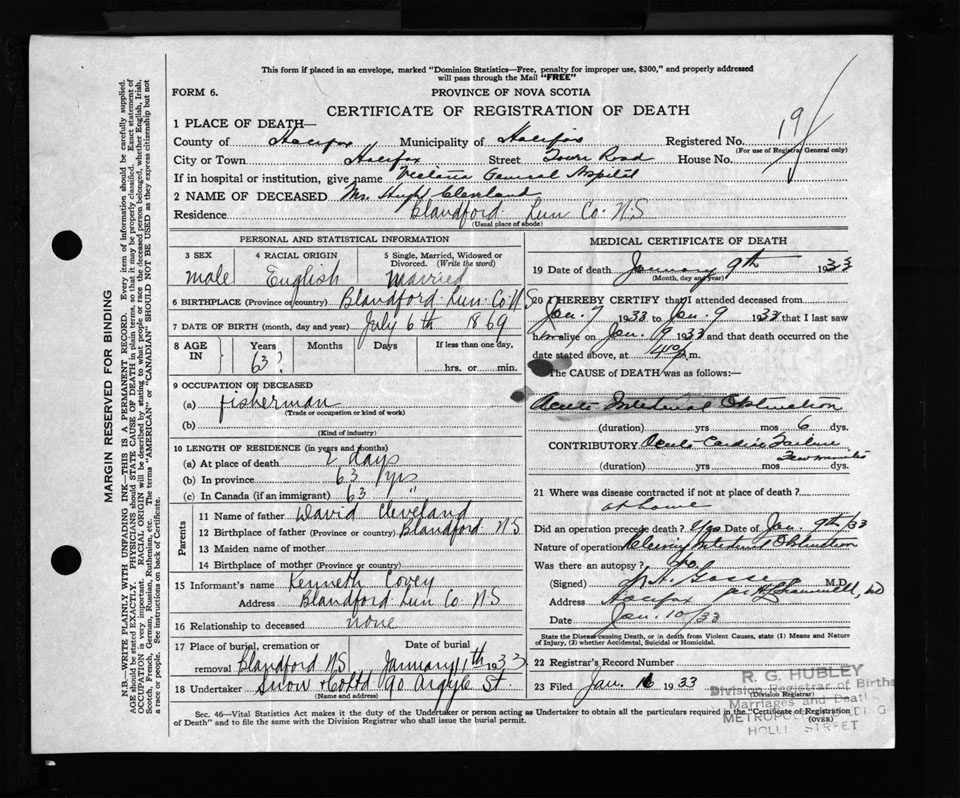 This form if placed in an envelope, marked "Dominion Statistics—Free, penalty for improper use, $300," and properly addressed
will pass through the Mail "FREE"
FORM 6.
PROVINCE OF NOVA SCOTIA
CERTIFICATE OF REGISTRATION OF DEATH
1 PLACE OF DEATH—
County of Halifax Municipality of Halifax Registered No. 19
(For use of Registrar General only)
City or Town Halifax Street Tower Road House No.
If in hospital or institution, give name Victoria General Hospital
2 NAME OF DECEASED Mr. Hugh Cleveland
Residence Blandford Lun. Co. N.S
(Usual place of abode)
PERSONAL AND STATISTICAL INFORMATION
3 SEX 4 RACIAL ORIGIN 5 Single, Married, Widowed or Divorced. (Write the word)
male English Married
6 BIRTHPLACE (Province or country) Blandford Lun. Co N S
7 DATE OF BIRTH (month, day and year) July 6th 1869
8 AGE IN Years Months Days If less than one day,
63? hrs. or min.
9 OCCUPATION OF DECEASED
(a) fisherman
(Trade or occupation or kind of work)
(b)
(Kind of industry)
10 LENGTH OF RESIDENCE (in years and months)
(a) At place of death 2 days
(b) In province 63 yrs
(c) In Canada (if an immigrant) 63 "
Parents
11 Name of father David Cleveland
12 Birthplace of father (Province or country) Blandford N S
13 Maiden name of mother
14 Birthplace of mother (Province or country)
15 Informant's name Kenneth Covey
Address Blandford Lun Co. N S
16 Relationship to deceased none
17 Place of burial, cremation or removal Blandford N S Date of burial January 11th 1933
18 Undertaker Snow Co Ltd 90 Argyle St.
(Name and address)
MEDICAL CERTIFICATE OF DEATH
19 Date of death January 9th 1933
(Month, day and year)
20 I HEREBY CERTIFY that I attended deceased from
Jan. 7 1933 to Jan. 9 1933 that I last saw
him alive on Jan. 9 1933 and that death occurred on the
date stated above, at m.
The CAUSE of DEATH was as follows:—
Acute Intestinal Obstruction
(duration) yrs mos 6 dys.
CONTRIBUTORY Acute Cardiac Failure
(duration) yrs mos few minutes dys.
21 Where was disease contracted if not at place of death?
at home
Did an operation precede death? yes Date of Jan. 9th/33
Nature of operation Relieving Intestinal Obstruction
Was there an autopsy? no.
(Signed) M.D.
Address Halifax
Date Jan. 10/33
State the Disease causing Death, or in death from Violent Causes, state (1) Means and Nature
of Injury, (2) whether Accidental, Suicidal or Homicidal.
22 Registrar's Record Number
23 Filed Jan. 1933
(Division Registrar)
R. G. HUBLEY
Division Registrar of Births
Marriages and Deaths
HOLLIS STREET
(OVER)
Sec. 46—Vital Statistics Act makes it the duty of the Undertaker or person acting as Undertaker to obtain all the particulars required in the "Certificate of Registration
of Death" and to file the same with the Division Registrar who shall issue the burial permit.
MARGIN RESERVED FOR BINDING
N.B.—WRITE PLAINLY WITH UNFADING INK—THIS IS A PERMANENT RECORD. Every item of information should be carefully supplied.
AGE should be stated EXACTLY. PHYSICIANS should STATE CAUSE OF DEATH in plain terms, so that it may be properly classified. Exact statement of
OCCUPATION is very important. RACIAL ORIGIN will be described by stating to what people or race the deceased person belonged, whether English, Irish,
Scotch, French, German, Russian, Ruthenian, etc. The terms "AMERICAN" or "CANADIAN" SHOULD NOT BE USED as they express citizenship but not
a race or people. See instructions on back of Certificate.